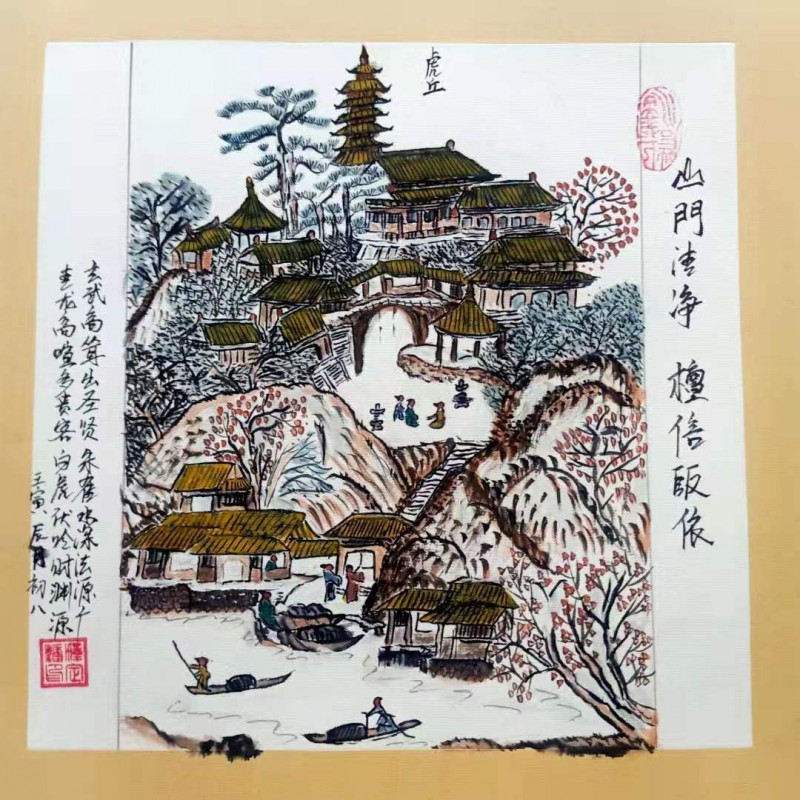 虎丘
山門清净 檀信皈依
玄武高出圣贤 朱雀水深法源广
青龙高喧多贵客 白虎伏吟财渊源
壬寅、辰月初八